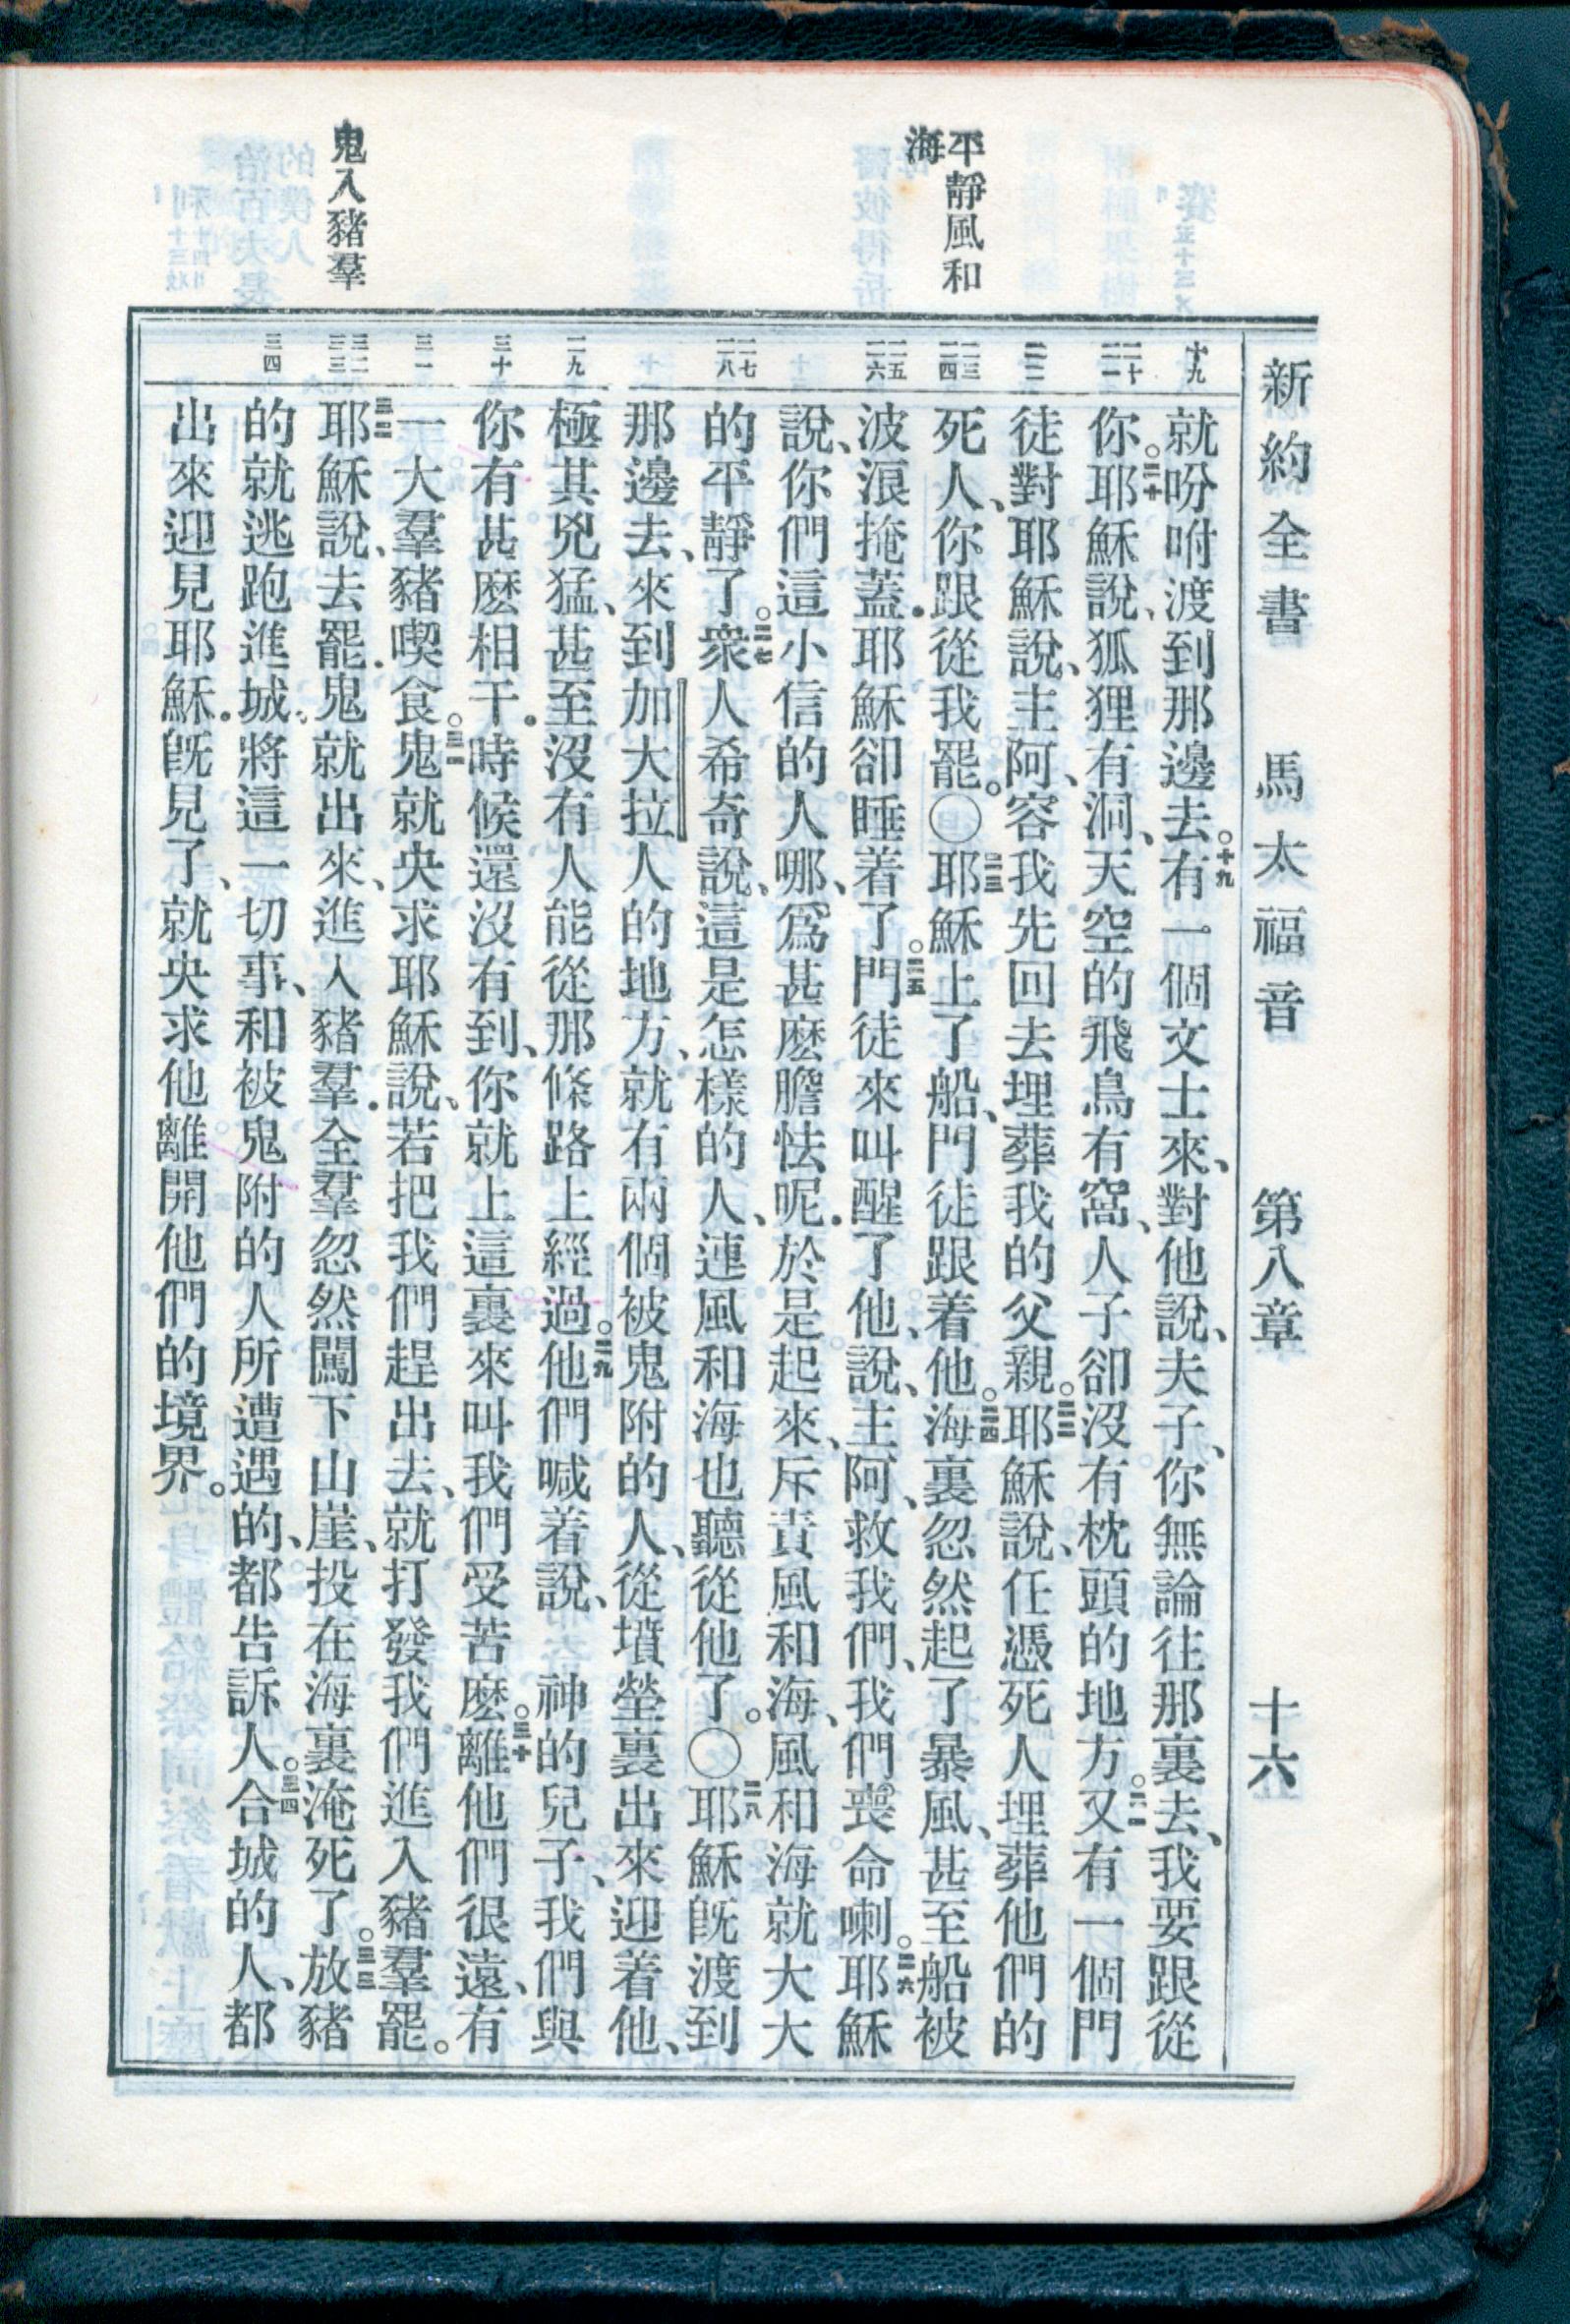 新約全書 馬太福音 第八章 十六
平靜風和
海
鬼入豬羣
十九
二十
二一
二二
二三
二四
二五
二六
二七
二八
二九
三十
三一
三二
三三
三四
就吩咐渡到那邊去。十九有一個文士來、對他說、夫子、你無論往那裏去、我要跟從
你。二十耶穌說、狐狸有洞、天空的飛鳥有窩、人子卻沒有枕頭的地方。二一又有一個門
徒對耶穌說、主阿、容我先回去埋葬我的父親。二二耶穌說、任憑死人埋葬他們的
死人、你跟從我罷。〇二三耶穌上了船、門徒跟着他。二四海裏忽然起了暴風、甚至船被
波浪掩蓋．耶穌卻睡着了。二五門徒來叫醒了他、說、主阿、救我們、我們喪命喇。二六耶穌
說、你們這小信的人哪、爲甚麽膽怯呢．於是起來、斥責風和海、風和海就大大
的平靜了。二七衆人希奇說、這是怎樣的人、連風和海也聽從他了。〇二八耶穌旣渡到
那邊去、來到加大拉人的地方、就有兩個被鬼附的人、從墳塋裏出來迎着他、
極其兇猛、甚至沒有人能從那條路上經過。二九他們喊着說、 神的兒子、我們與
你有甚麽相干．時候還沒有到、你就上這裏來叫我們受苦麽。三十離他們很遠、有
一大羣豬喫食。三一鬼就央求耶穌說、若把我們趕出去、就打發我們進入豬羣罷。
三二耶穌說、去罷．鬼就出來、進入豬羣．全羣忽然闖下山崖、投在海裏淹死了。三三放豬
的就逃跑進城．將這一切事、和被鬼附的人所遭遇的、都告訴人。三四合城的人、都
出來迎見耶穌．旣見了、就央求他離開他們的境界。